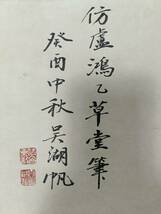 仿盧鴻乙草堂筆
癸酉中秋吳湖帆